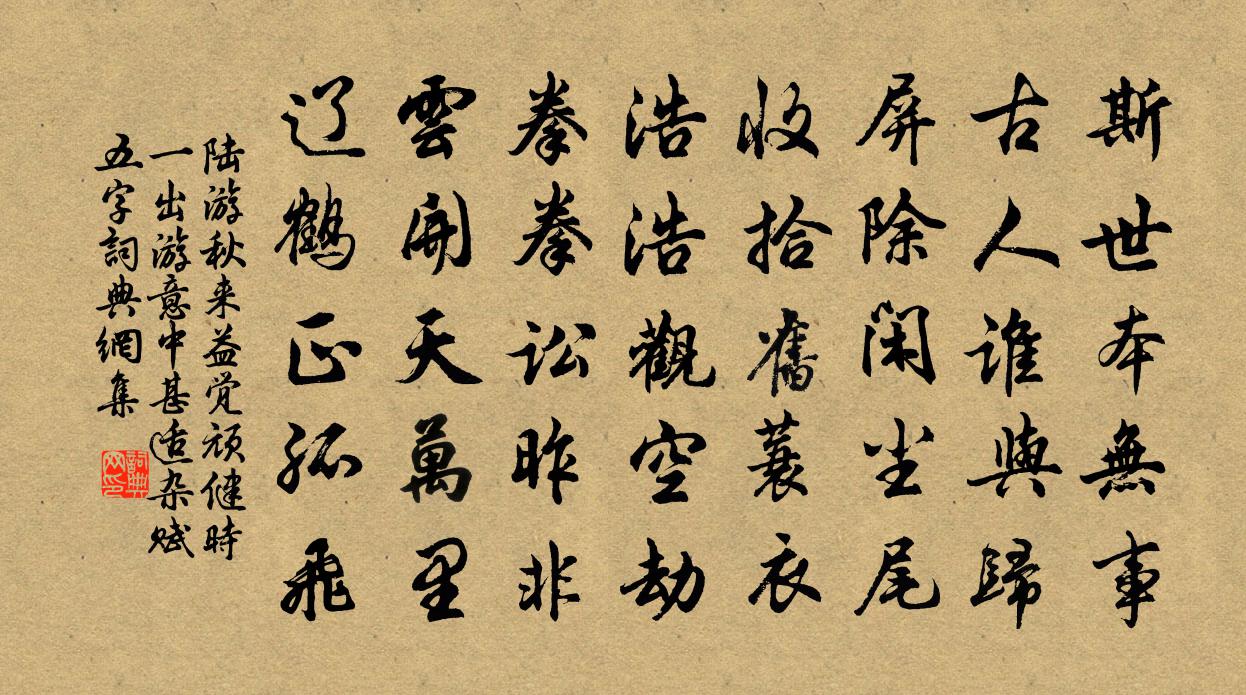 斯世本無事
古人誰與歸
屏除閑尘尾
收拾舊蓑衣
浩浩觀空劫
拳拳訟昨非
雲開天萬里
辽鶴正孤飛
陆游秋来益觉顽健時
一出游意中甚适杂赋
五字詞典網集
詞典
网印